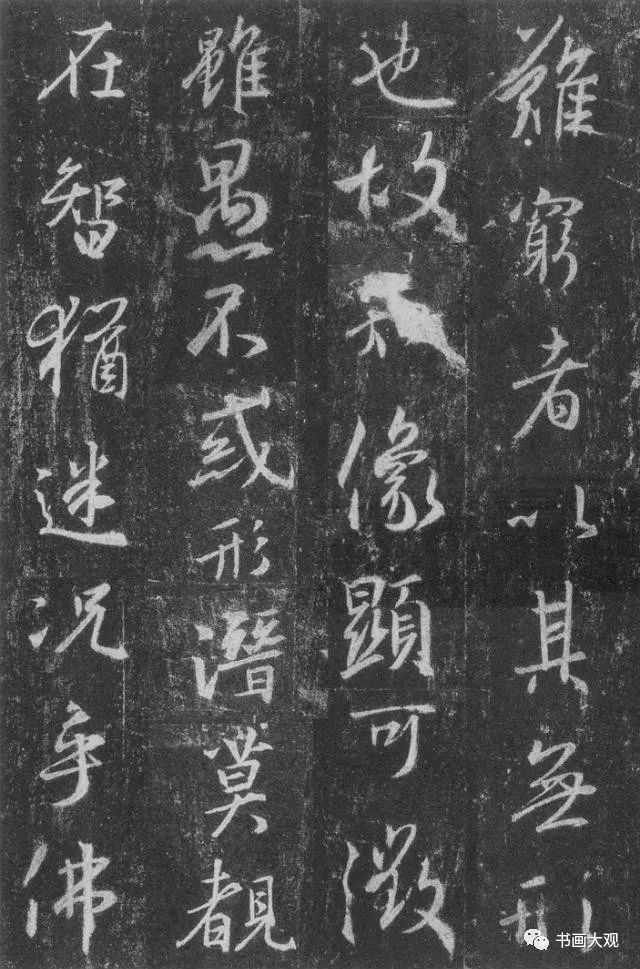 難窮者以其無形
也故像顯可徵
雖愚不惑形潛莫覩
在智猶迷況乎佛
书画大观